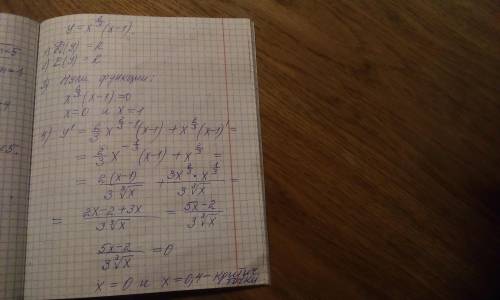 y = x^{2/3}(x-1).
1) D(y) = R
2) E(y) = R
3) Нули функции:
x^{2/3}(x-1)=0
x=0 и x=1
4) y' = 2/3 x^{2/3-1}(x-1) + x^{2/3}(x-1)' =
= 2/3 x^{-1/3}(x-1) + x^{2/3} =
= 2(x-1)/(3∛x) + 3x^{2/3}·x^{1/3}/(3∛x) =
= (2x-2+3x)/(3∛x) = (5x-2)/(3∛x)
(5x-2)/(3∛x) = 0
x=0 и x=0,4 - критич
точки